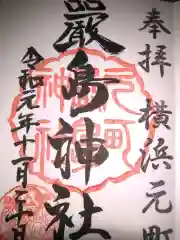 奉拝 横浜元町
嚴島神社
令和元年十一月二十日
元町
神社